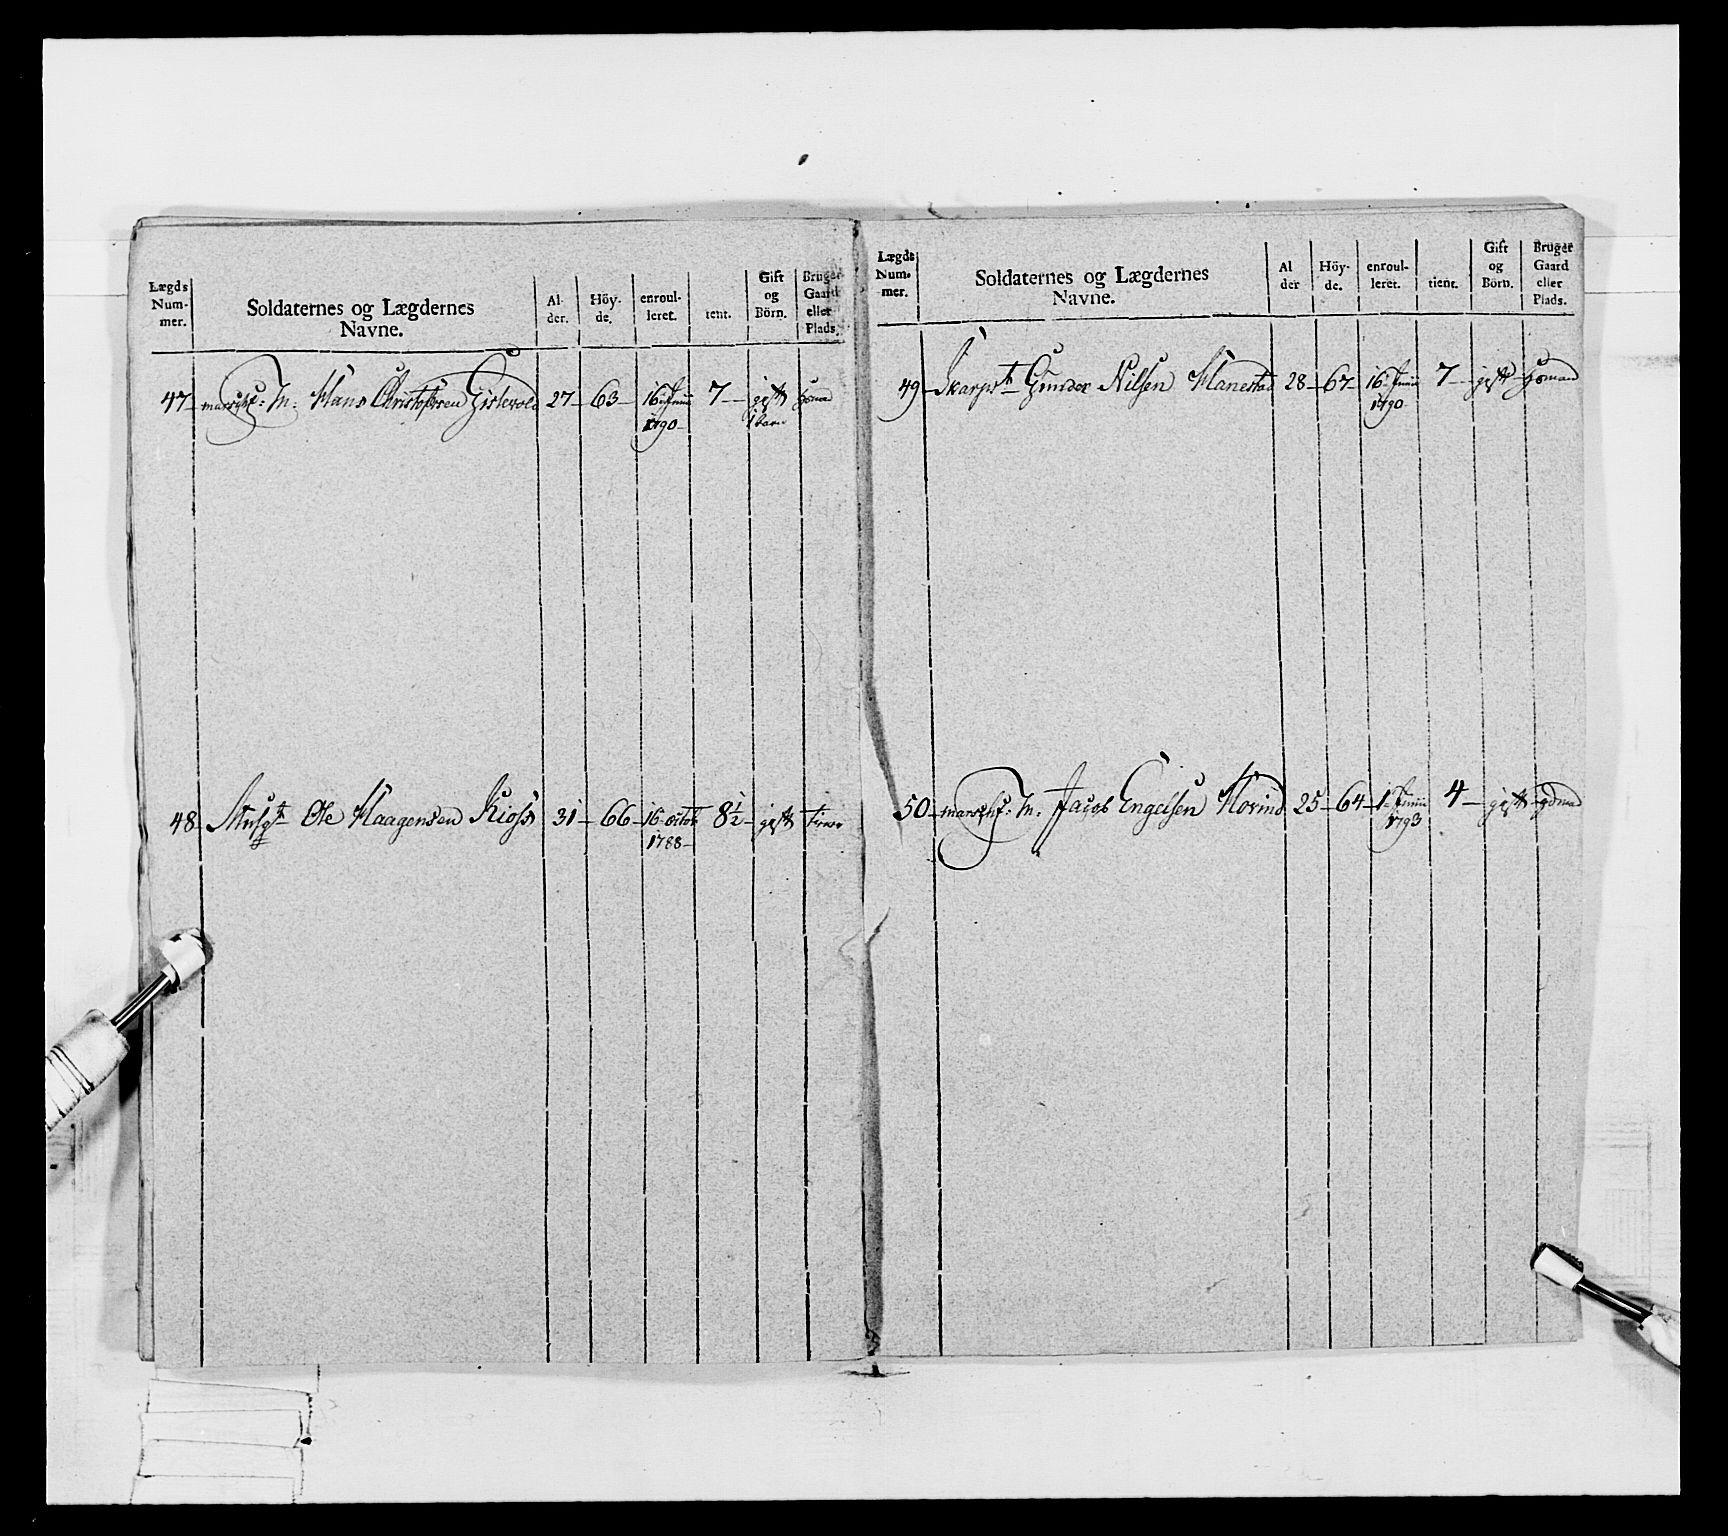 Lægds Num- mer.
Soldaternes og Lægdernes Navne.
Al- der.
Höy- de.
enroul- leret.
tient.
Gift og Börn.
Bruger Gaard eller Plads.
47 - Hans Christophersen 27 - 63 - 16 Junii 1790 - 7 - gift 1 barn
48 - Musqt Ole Haagensen Kioss 31 - 66 - 16 octob 1788 - 8½ - gift
Lægds Num- mer.
Soldaternes og Lægdernes Navne.
Al der
Höy- de.
enroul- leret.
tient.
Gift og Börn.
Bruger Gaard eller Plads.
49 - Skarpst Gunder Nilsen Hanestad 28 - 67 - 16 Junii 1790 - 7 - gift Huusmand
50 - Jacob Engelsen 25 - 64 - 1 Junii 1793 4 - gift